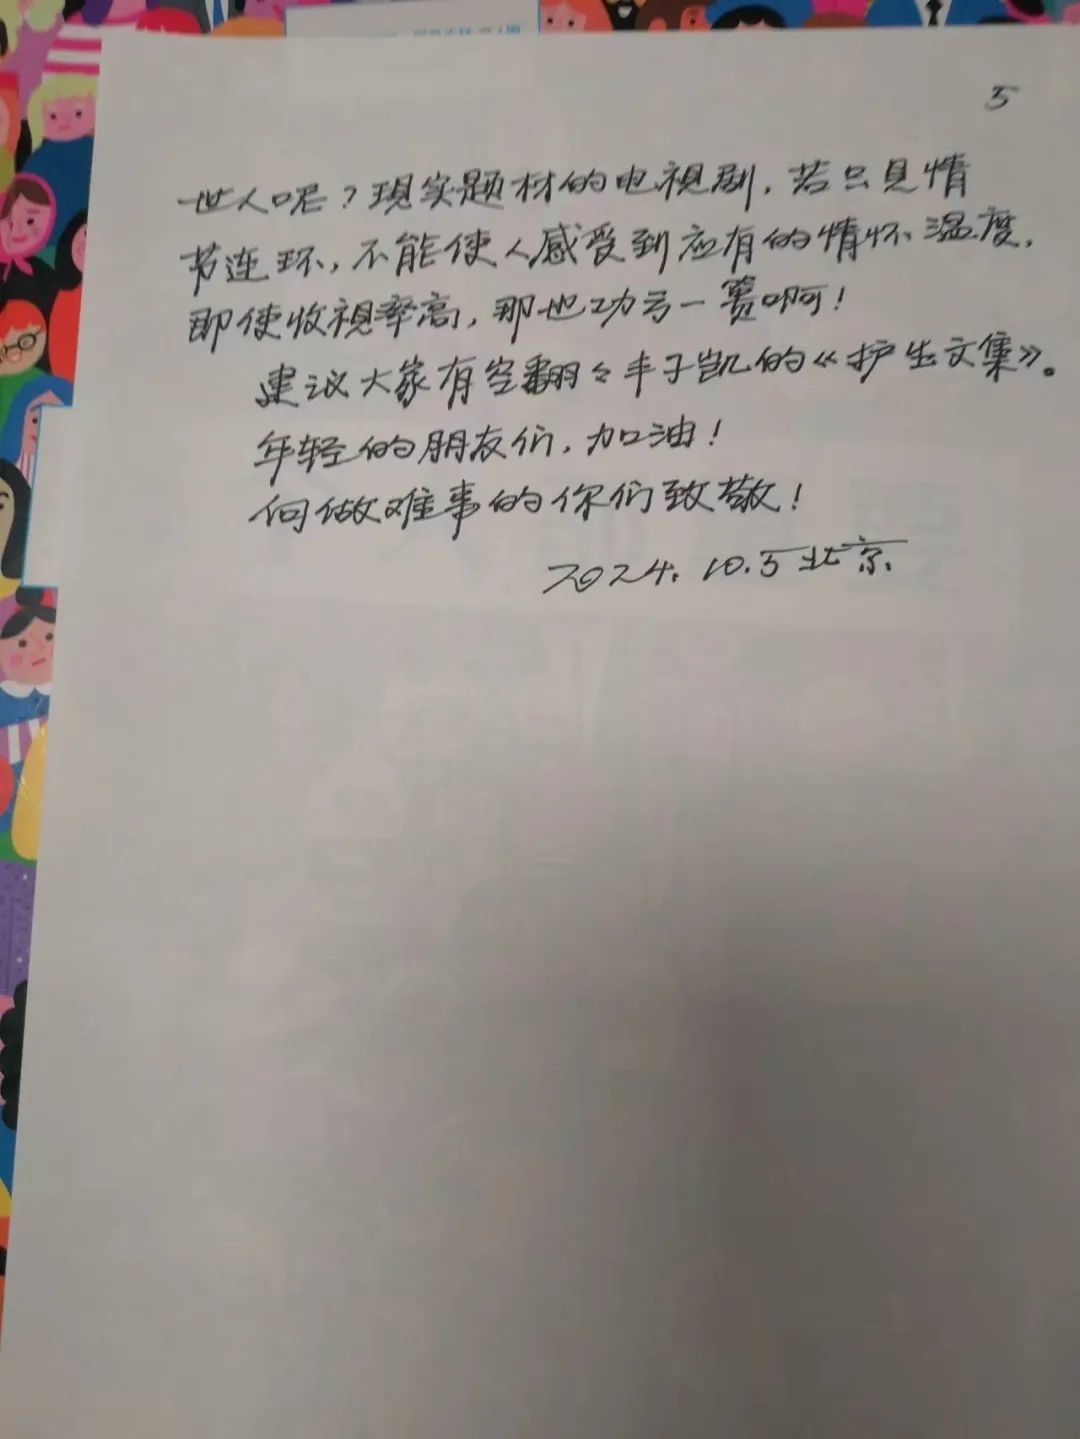 5
世人呢？现实题材的电视剧，若只见情
节连环，不能使人感受到应有的情怀温度，
即使收视率高，那也功亏一篑啊！
建议大家有空翻々丰子凯的《护生文集》。
年轻的朋友们，加油！
向做难事的你们致敬！
2024.10.5北京.